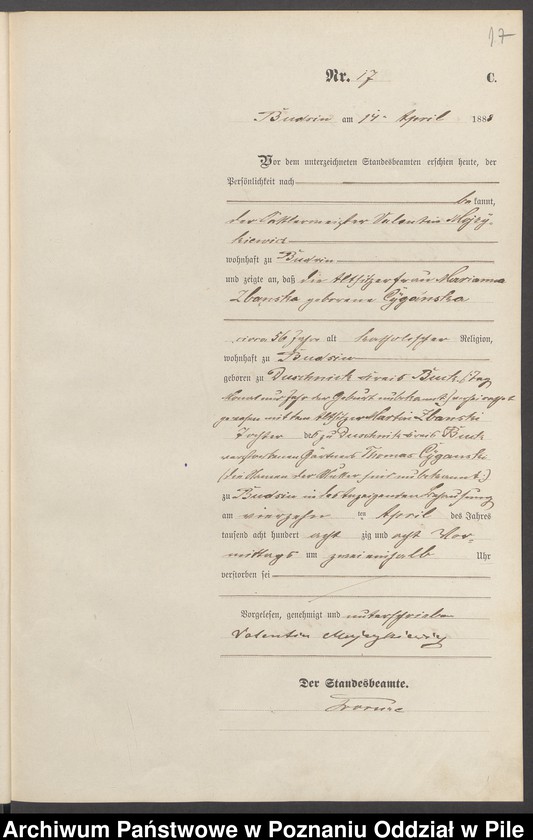 17
Nr. 17 C.
Budsin am 14. April 1888
Vor dem unterzeichneten Standesbeamten erschien heute, der
Persönlichkeit nach
bekannt,
der Sattlermeister Valentin
wohnhaft zu Budsin
und zeigte an, daß die Altsitzerfrau Marianna
Zbanska geborene Cyganska
circa 56 Jahr alt katholischer Religion,
wohnhaft zu Budsin
geboren zu Duschnick Kreis Buck, Tag
Monat und Jahr der Geburt unbekannt,
gewesen mit dem Altsitzer Martin Zbanski
Tochter des zu Duschnik Kreis Buck
verstorbenen Gärtners Thomas Cyganski
(die Namen der Mutter sind unbekannt.)
zu Budsin in des Anzeigenden Behausung
am vierzehn ten April des Jahres
tausend acht hundert acht zig und acht Vor-
mittags um zwei einhalb Uhr
verstorben sei
Vorgelesen, genehmigt und unterschrieben
Valentin
Der Standesbeamte.
Archiwum Państwowe w Poznaniu Oddział w Pile